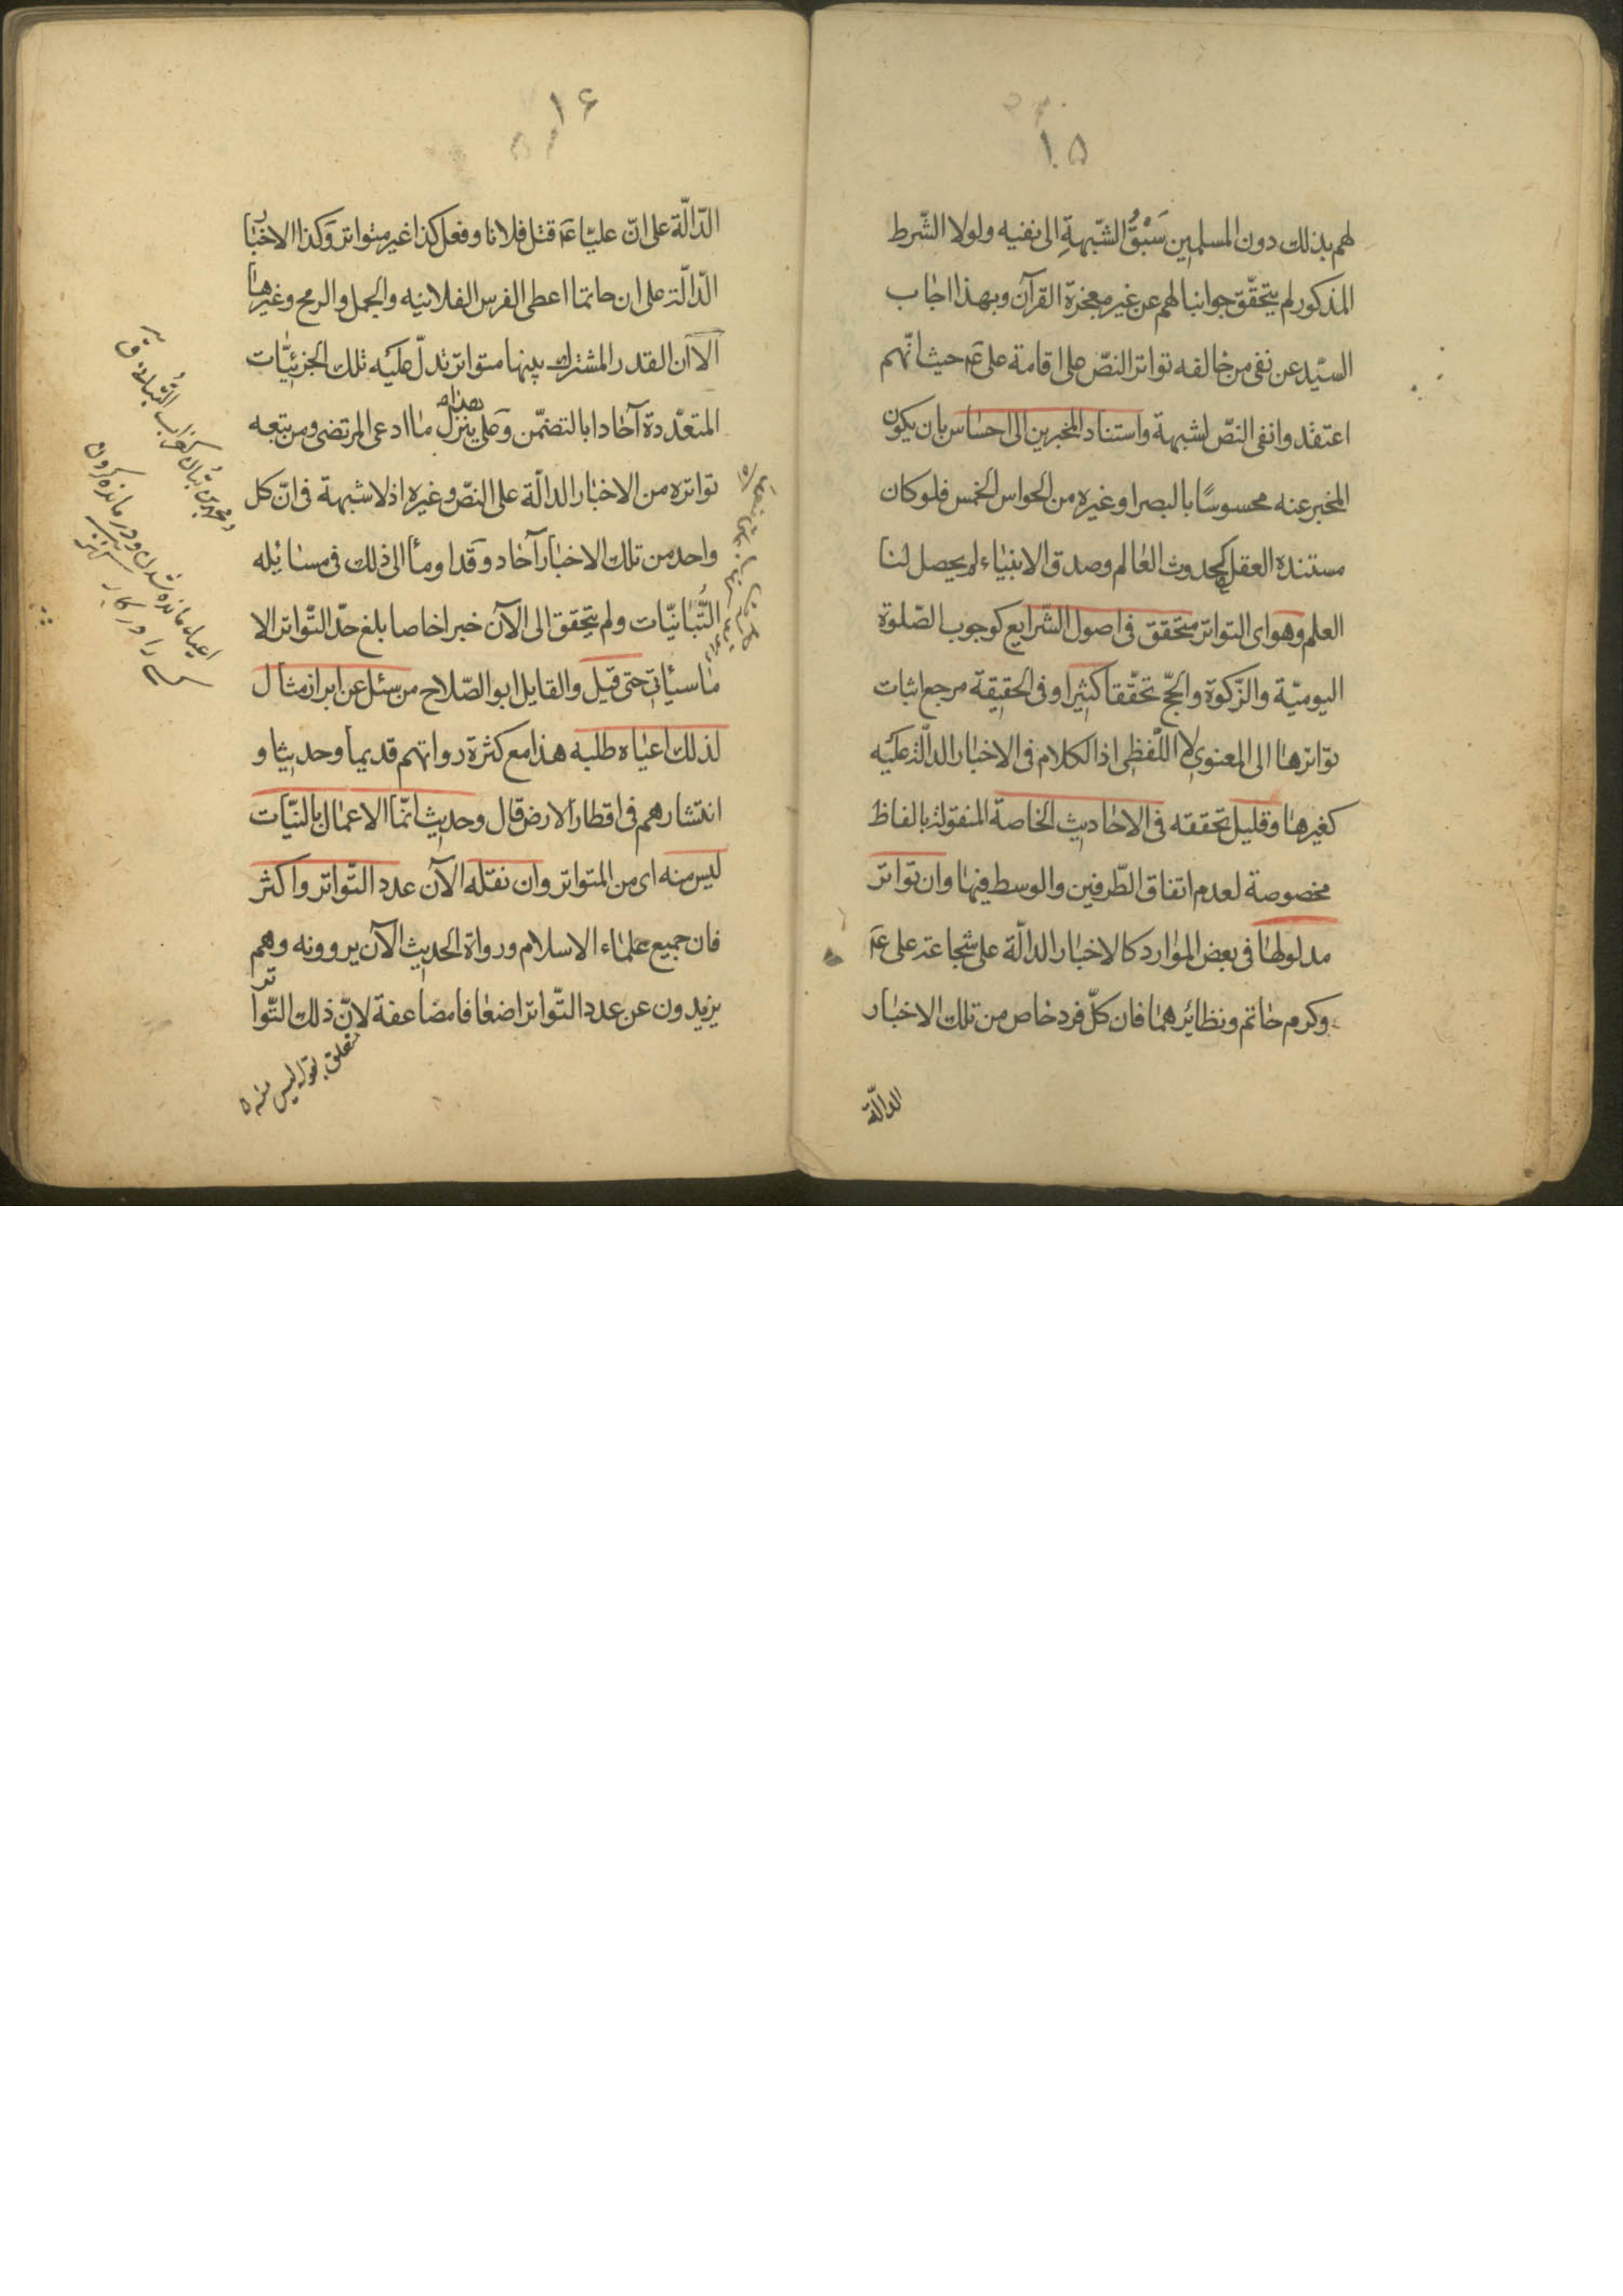 ١٥
لهم بذلك دون المسلمين سَبْقُ الشّبهةِ الى نفيه ولولا الشّرط
المذكور لم يتحقّق جوابنا لهم عن غير معجزة القرآن وبهذا اجاب
السيّد عن نفى من خالفه تواتر النصّ على اقامة على عَ حيث انّهم
اعتقدوا نفى النصّ لشبهة واستناد المخبرين الى احساس بان يكون
المخبر عنه محسوسًا بالبصر او غيره من الحواس الخمس فلو كان
مستنده العقل كحدوث العالم وصدق الانبياء لم يحصل لنا
العلم وهو اى التواتر متحقق فى اصول الشّرايع كوجوب الصّلوة
اليوميّة والزّكوة والحجّ تحقّقا كثيرا وفى الحقيقة مرجع اثبات
تواترها الى المعنوى لا اللّفظى اذ الكلام فى الاخبار الدالّة عليه
كغيرها وقليل تحققه فى الاحاديث الخاصة المنقولة بالفاظ
مخصوصة لعدم اتفاق الطّرفين والوسط فيها وان تواتر
مدلولها فى بعض الموارد كالاخبار الدالّة على شجاعة على عَ
وكرم حاتم ونظائرهما فان كلّ فرد خاص من تلك الاخبار
الدالّة
١۶
الدّالّة على انّ عليّا عَ قتل فلانا وفعل كذا غير متواتر وَكذا الاخبار
الدّالّة على ان حاتما اعطى الفرس الفلانيه والجمل والرمح وغيرها
الا ان القدر المشترك بينها متواتر تدلّ عليَه تلك الجزئيّات
المتعدّدة آحادا بالتضمّن وَعلى هذا ينزل ما ادعى المرتضى ومن تبعه
تواتره من الاخبار الدالّة على النصّ وغيره اذ لا شبهة فى انّ كل
واحد من تلك الاخبار آحاد وَقد اومأ الى ذلك فى مسائله
التُّبّانيّات ولم يتحقق الى الآن خبر اخاصا بلغ حدّ التّواتر الا
ما سيأتى حتى قيل والقايل ابو الصّلاح من سئل عن ابراز مثال
لذلك اعياه طلبه هذا مع كثرة رواتهم قديما وحديثا و
انتشارهم فى اقطار الارض قال وحديث انّما الاعمال بالنيّات
ليس منه اى من المتواتر وان نقله الآن عدد التّواتر واكثر
فان جميع علماء الاسلام ورواة الحديث الآن يروونه وهم
يزيدون عن عدد التّواتر اضعافا مضاعفة لانّ ذلك التّواتر
متعلق بقوله ليس منه
اعياء مانده شدن ودر مانده كردن